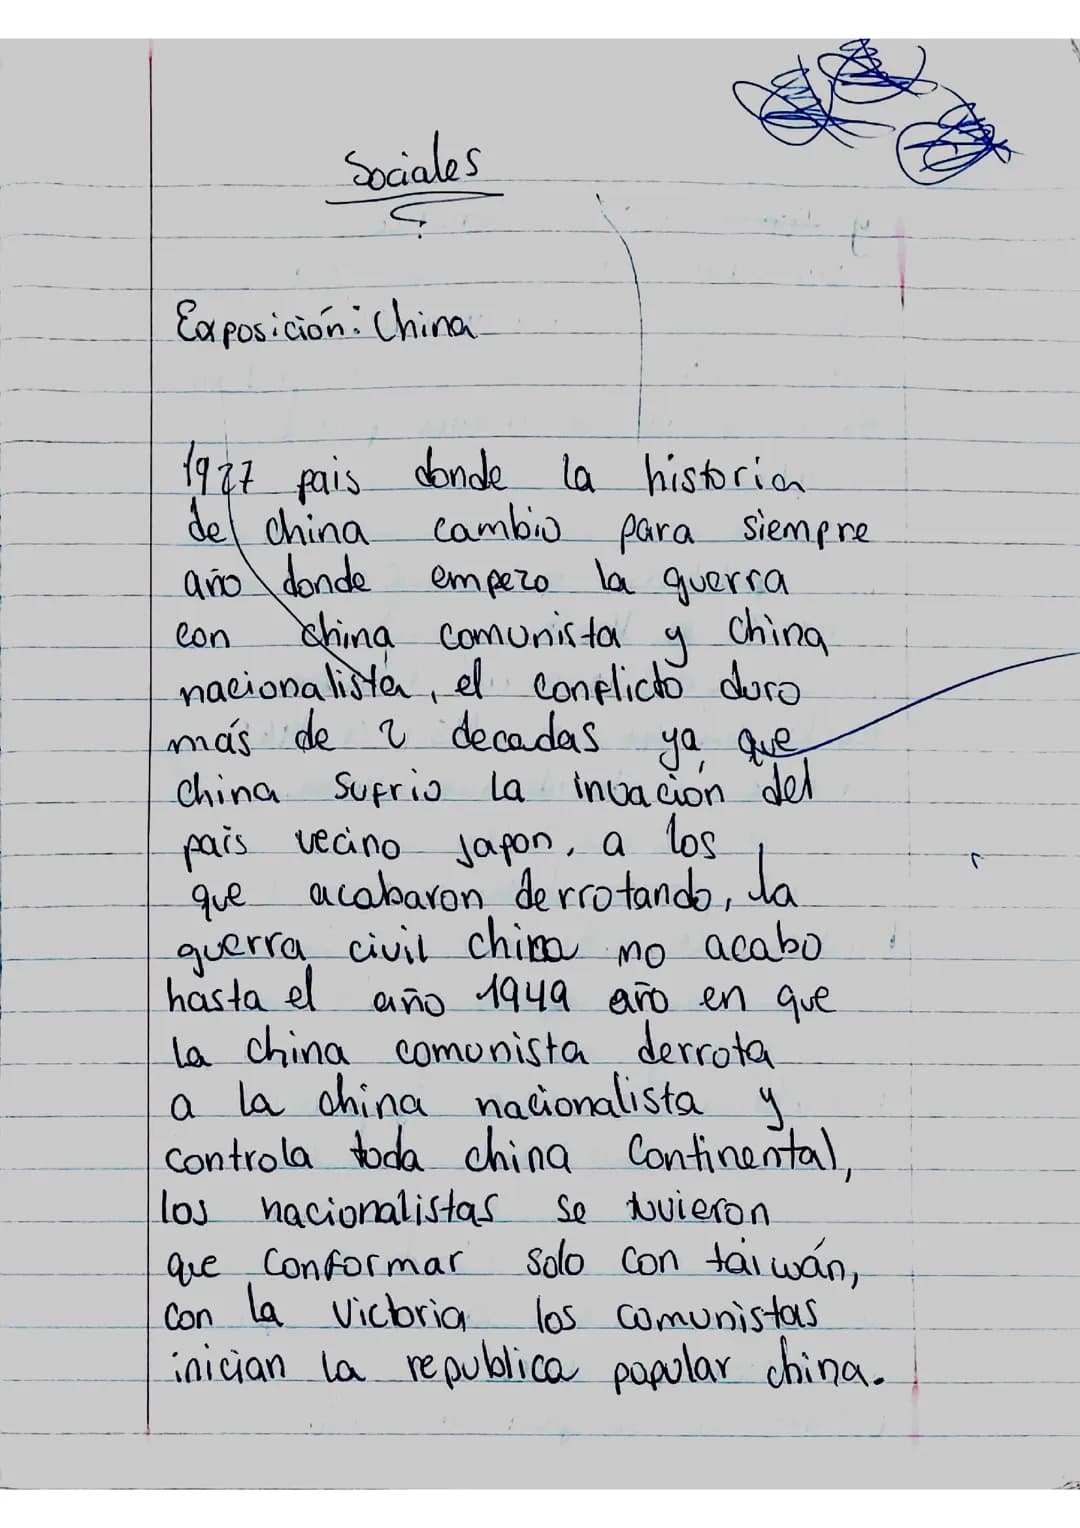 Sociales
Exposición: China
1927 pais donde la historia
de china cambio para siempre
año donde empezo la guerra
con china comunista y China
nacionalista, el conflicto duro
más de 2 decadas ya que
china Sufrio la invación del
pais vecino Japon, a los
que acabaron derrotando, la
guerra civil china no acabo
hasta el año 1949 año en que
la china comunista derrota
a la china nacionalista y
controla toda china Continental,
los nacionalistas se tuvieron
que Conformar solo con taiwán,
con la Victoria los comunistas
inician la republica popular china.